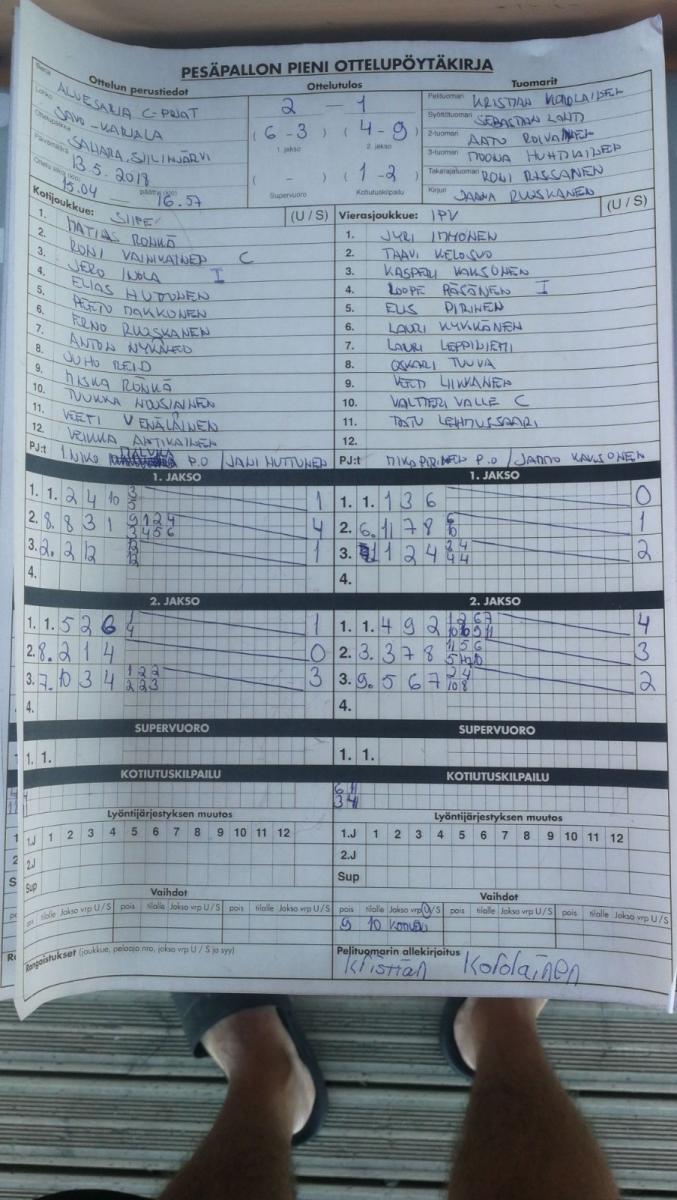 PESÄPALLON PIENI OTTELUPÖYTÄKIRJA
Ottelun perustiedot Ottelutulos Tuomarit
Sarja ALUESARJA C-POJAT 2 — 1 Pelituomari KRISTIAN KOROLAINEN
Lohko SAVO-KARJALA (6-3) (4-9) Syöttötuomari SEBASTIAN
Ottelupaikka SAHARA, SIILINJÄRVI 1. jakso 2. jakso 2-tuomari AATU ROIVAINEN
Päivämäärä 13.5.2018 ( - ) (1-2) 3-tuomari HUHTIKAINEN
15.04 — päättyi (klo) 16.57 Supervuoro Kotiutuskilpailu Takarajatuomari RONI RISSANEN
Kirjuri JAANA RUUSKANEN
Kotijoukkue: SIIPE (U / S) Vierasjoukkue: IPV (U / S)
1. MATIAS RÖNKÄ 1. JYRI IMMONEN
2. RONI VAINIKAINEN C 2. TAAVI KELOSUO
3. JERO INOLA I 3. KASPERI KAKSONEN
4. ELIAS HUTTUNEN 4. ROOPE RÄSÄNEN I
5. PEETU MAKKONEN 5. ELIS PIRINEN
6. ERNO RUUSKANEN 6. LAURI KYKKÄNEN
7. ANTON NYKÄNEN 7. LAURI LEPPINIEMI
8. JUHO REID 8. OSKARI TUUVA
9. MISKA RÖNKÄ 9. VEETI LIIKKANEN
10. TUUKKA NOUSIAINEN 10. VALTTERI VALLE C
11. VEETI VENÄLÄINEN 11. TATU LEHMUSSAARI
12. VEIKKA ANTIKAINEN 12.
PJ:t NIKO P.O / JANI HUTTUNEN PJ:t MIKA PIRINEN P.O / JARMO KAKSONEN
1. JAKSO 1. JAKSO
1. 1. 2 4 10 3 5 1 1. 1. 1 3 6 0
2. 8. 8 3 1 9 1 2 4 3 4 5 6 4 2. 6. 11 7 8 6 10 1
3. 2. 2 12 12 12 1 3. 1 1 2 4 3 4 4 4 2
4. 4.
2. JAKSO 2. JAKSO
1. 1. 5 2 6 1 4 1 1. 1. 4 9 2 1 2 6 7 10 10 9 11 4
2. 8. 2 1 4 0 2. 3. 3 7 8 11 5 6 3
3. 7. 10 3 4 1 2 2 2 2 3 3 3. 9. 5 6 7 2 4 10 8 2
4. 4.
SUPERVUORO SUPERVUORO
1. 1. 1. 1.
KOTIUTUSKILPAILU KOTIUTUSKILPAILU
6 11
3 4
Lyöntijärjestyksen muutos Lyöntijärjestyksen muutos
1.J 1 2 3 4 5 6 7 8 9 10 11 12 1.J 1 2 3 4 5 6 7 8 9 10 11 12
2.J 2.J
Sup Sup
Vaihdot Vaihdot
pois tilalle Jakso vrp U / S pois tilalle Jakso vrp U / S pois tilalle Jakso vrp U / S pois tilalle Jakso vrp U / S pois tilalle Jakso vrp U / S pois tilalle Jakso vrp U / S
9 10
Rangaistukset (joukkue, pelaaja nro, jakso vrp U / S ja syy) Pelituomarin allekirjoitus
Kristian Korolainen